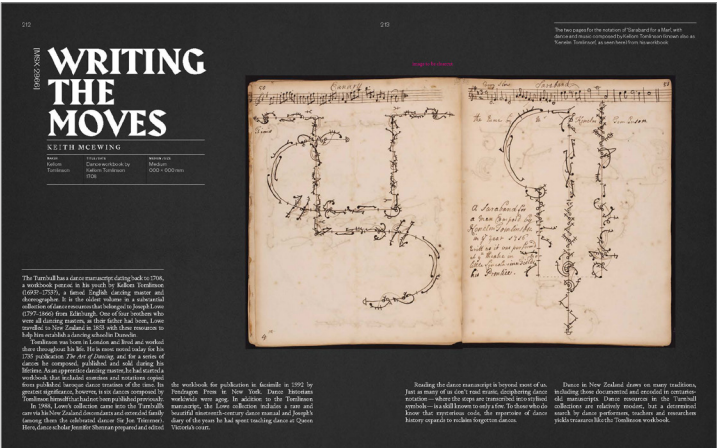 212
213
[MSX 2966]
WRITING
THE
MOVES
KEITH MCEWING
Kellom
Tomlinson
Dance workbook by
Kellom Tomlinson
1708
Medium
000 × 000 mm
The two pages for the notation of 'Saraband for a Man', with
dance and music composed by Kellom Tomlinson (known also as
'Kenelm Tomlinson', as seen here) from his workbook.
Saraband
A Saraband for
a Man
The Turnbull has a dance manuscript dating back to 1708,
a workbook penned in his youth by Kellom Tomlinson
(1693?–1753?), a famed English dancing master and
choreographer. It is the oldest volume in a substantial
collection of dance resources that belonged to Joseph Lowe
(1797–1866) from Edinburgh. One of four brothers who
were all dancing masters, as their father had been, Lowe
travelled to New Zealand in 1853 with these resources to
help him establish a dancing school in Dunedin.
Tomlinson was born in London and lived and worked
there throughout his life. He is most noted today for his
1735 publication The Art of Dancing, and for a series of
dances he composed, published and sold during his
lifetime. As an apprentice dancing master, he had started a
workbook that included exercises and notations copied
from published baroque dance treatises of the time. Its
greatest significance, however, is six dances composed by
Tomlinson himself that had not been published previously.
In 1988, Lowe's collection came into the Turnbull's
care via his New Zealand descendants and extended family
(among them the celebrated dancer Sir Jon Trimmer).
Here, dance scholar Jennifer Shennan prepared and edited
the workbook for publication in facsimile in 1992 by
Pendragon Press in New York. Dance historians
worldwide were agog. In addition to the Tomlinson
manuscript, the Lowe collection includes a rare and
beautiful nineteenth-century dance manual and Joseph's
diary of the years he had spent teaching dance at Queen
Victoria's court.
Reading the dance manuscript is beyond most of us.
Just as many of us don't read music, deciphering dance
notation – where the steps are transcribed into stylised
symbols – is a skill known to only a few. To those who do
know that mysterious code, the repertoire of dance
history expands to reclaim forgotten dances.
Dance in New Zealand draws on many traditions,
including those documented and encoded in centuries-
old manuscripts. Dance resources in the Turnbull
collections are relatively modest, but a determined
search by dance performers, teachers and researchers
yields treasures like the Tomlinson workbook.